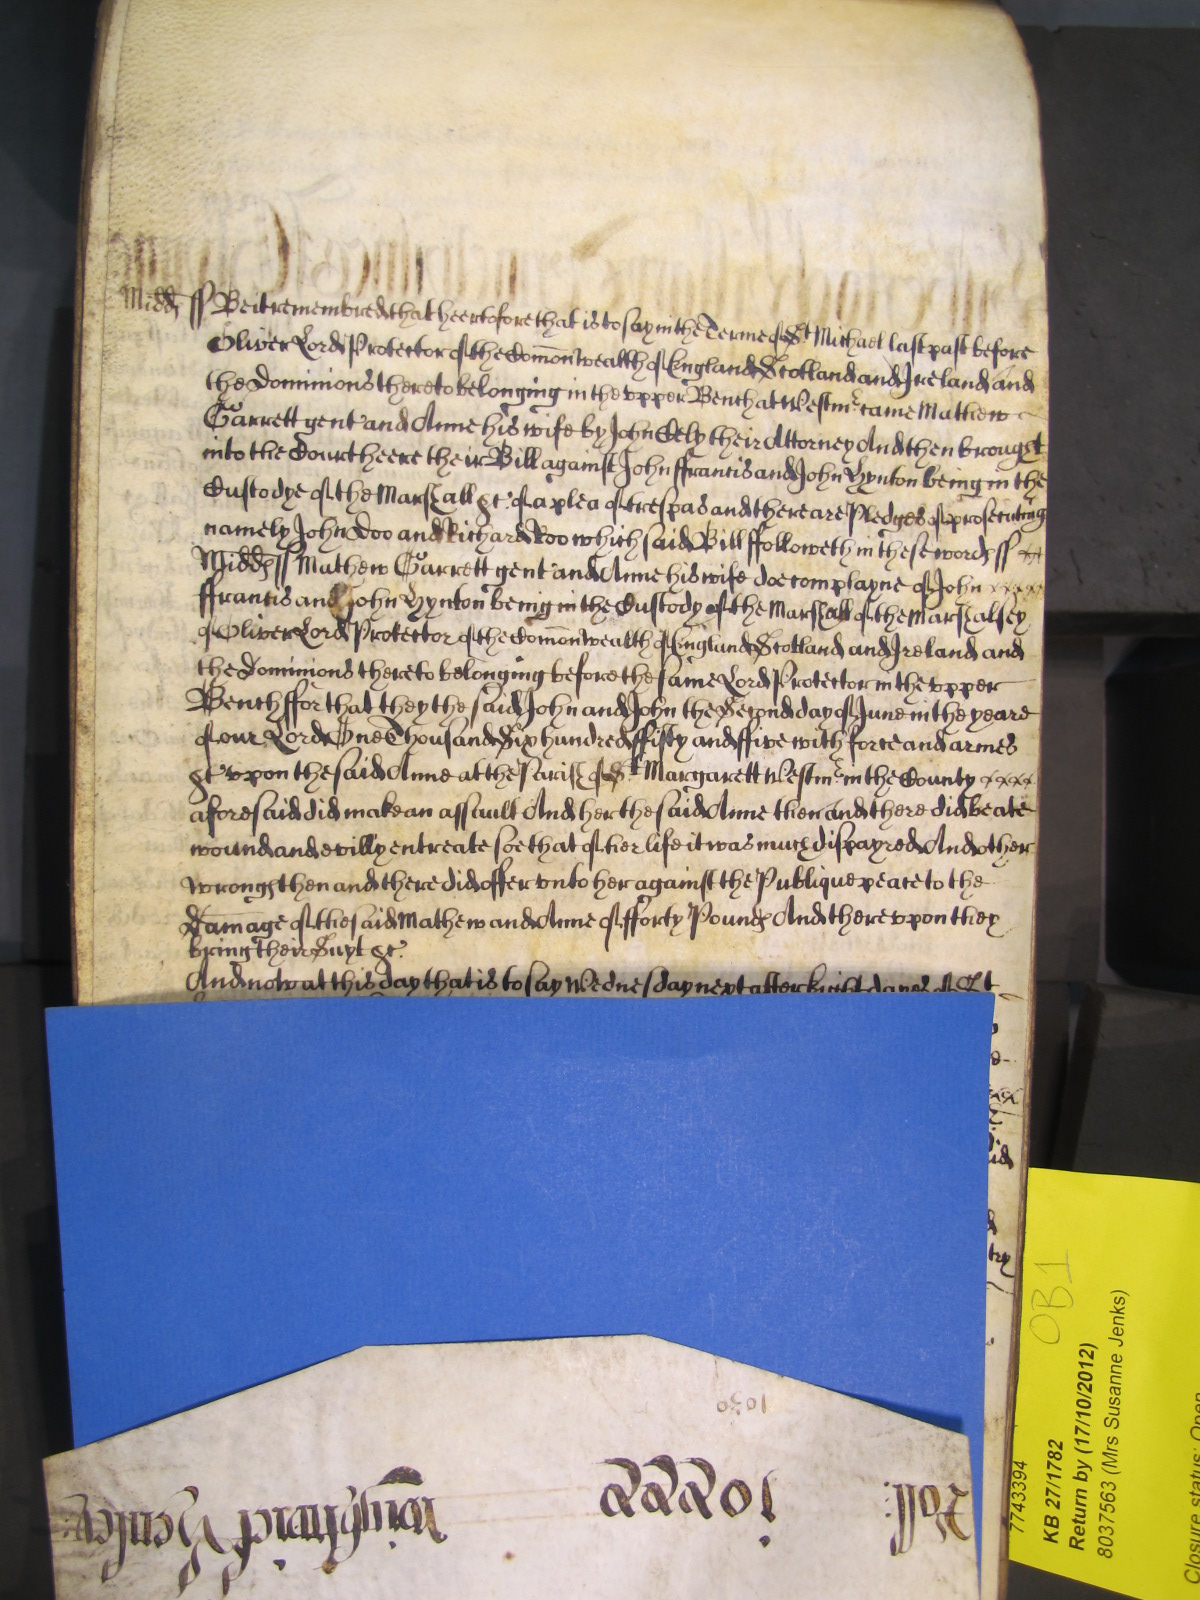 Midds ss Be it remembred that heertofore that is to say in the Terme of St Michael last past before
Oliver Lord Protector of the Comonwealth of England Scotland and Ireland and
the Dominions thereto belonging in the vpper Bench at Westmr came Mathew
Garrett gent and Anne his wife by John Cely their Attorney And then brought
into the Court heere their Bill against John ffrancis and John Hynton being in the
Custodye of the Marshall &c of a plea of trespas and there are Pledges of prosecuting
namely John Doo and Richard Roo which said Bill ffolloweth in these words ss
Midds ss Mathew Garrett gent and Anne his wife doe complayne of John
ffrancis and John Hynton being in the Custody of the Marshall of the Marshalsey
of Oliver Lord Protector of the Comonwealth of England Scotland and Ireland and
the Dominions thereto belonging before the same Lord Protector in the vpper
Bench ffor that they the said John and John the Second day of June in the yeare
of our Lord One Thousand Six hundred ffifty and ffive with force and armes
&c vpon the said Anne at the Parish of St Margarett Westmr in the County
aforesaid did make an assault And her the said Anne then and there did beate
wound and evilly entreate soe that of her life it was much dispayred And other
wrongs then and there did offer vnto her against the Publique peace to the
damage of the said Mathew and Anne of fforty Pounds And therevpon they
bring their Suyt &c
And now at this day that is to say Wednesday next after eight dayes of St
1030
Roll:
7743394
KB 27/1782
Return by (17/10/2012)
8037563 (Mrs Susanne Jenks)
OB1
Closure status: Open